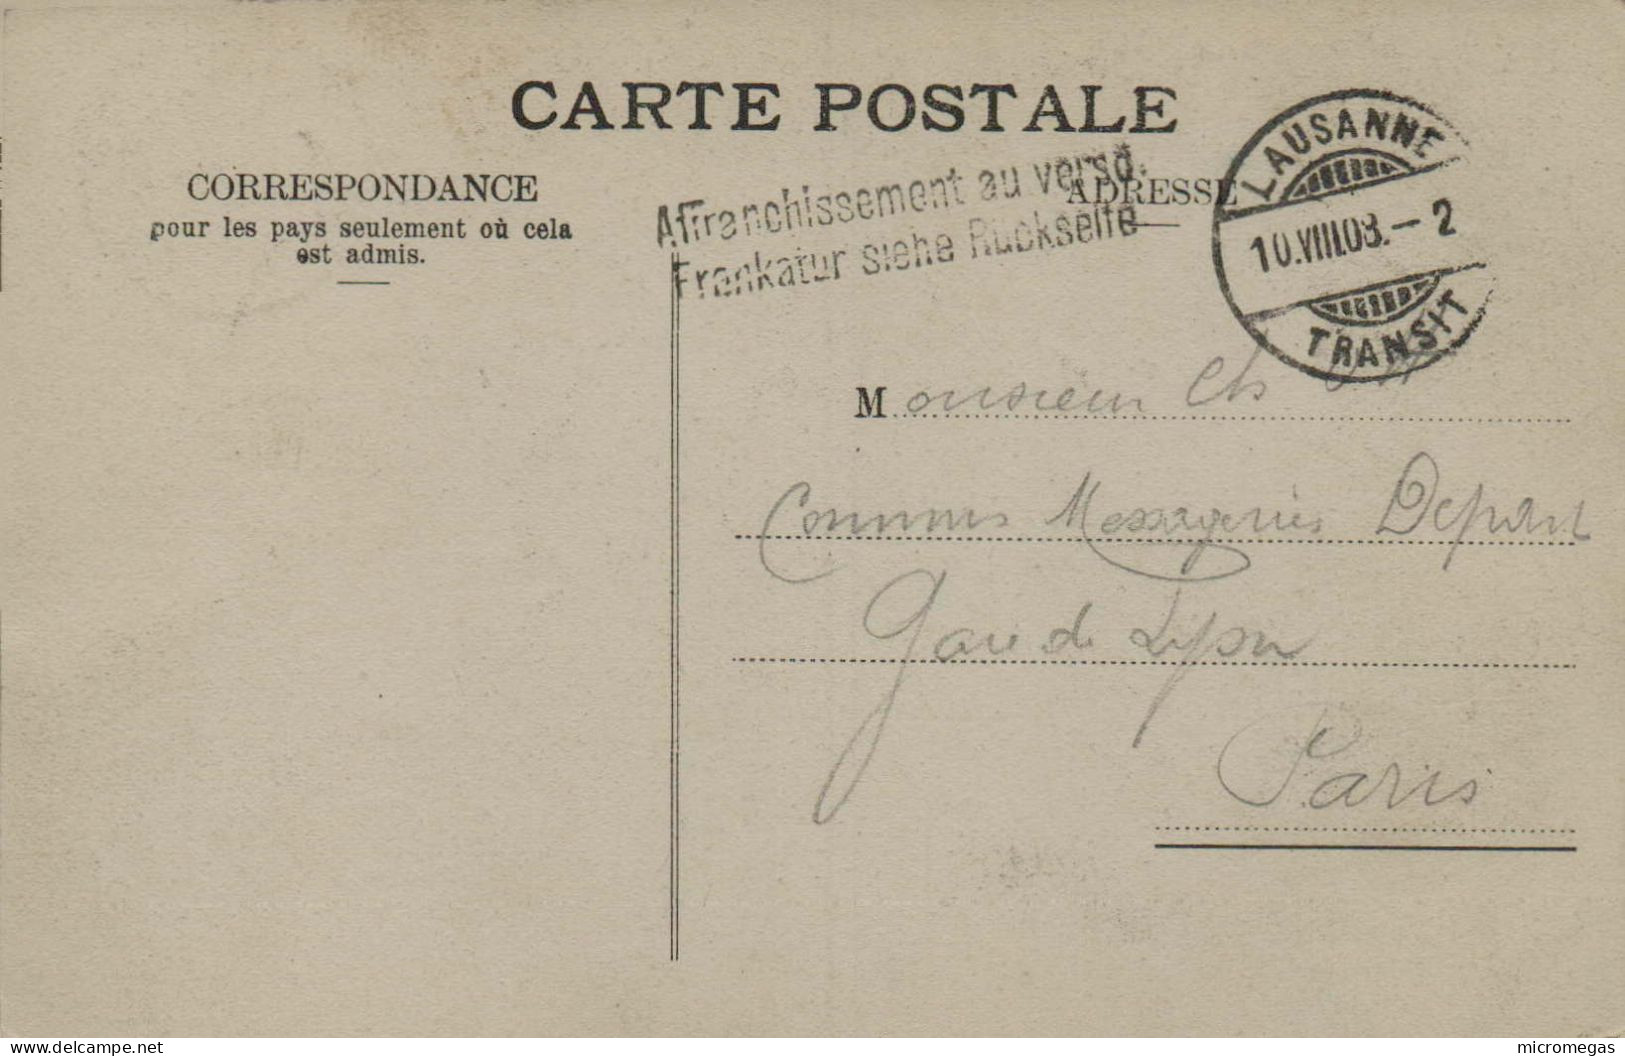 CARTE POSTALE
CORRESPONDANCE
pour les pays seulement où cela
est admis.
Affranchissement au verso.
Frankatur siehe Rückseite
ADRESSE
LAUSANNE
10.VIII.08.-2
TRANSIT
Monsieur Ch
Commis Messageries Depart
Gare de Lyon
Paris
www.delcampe.net
micromegas